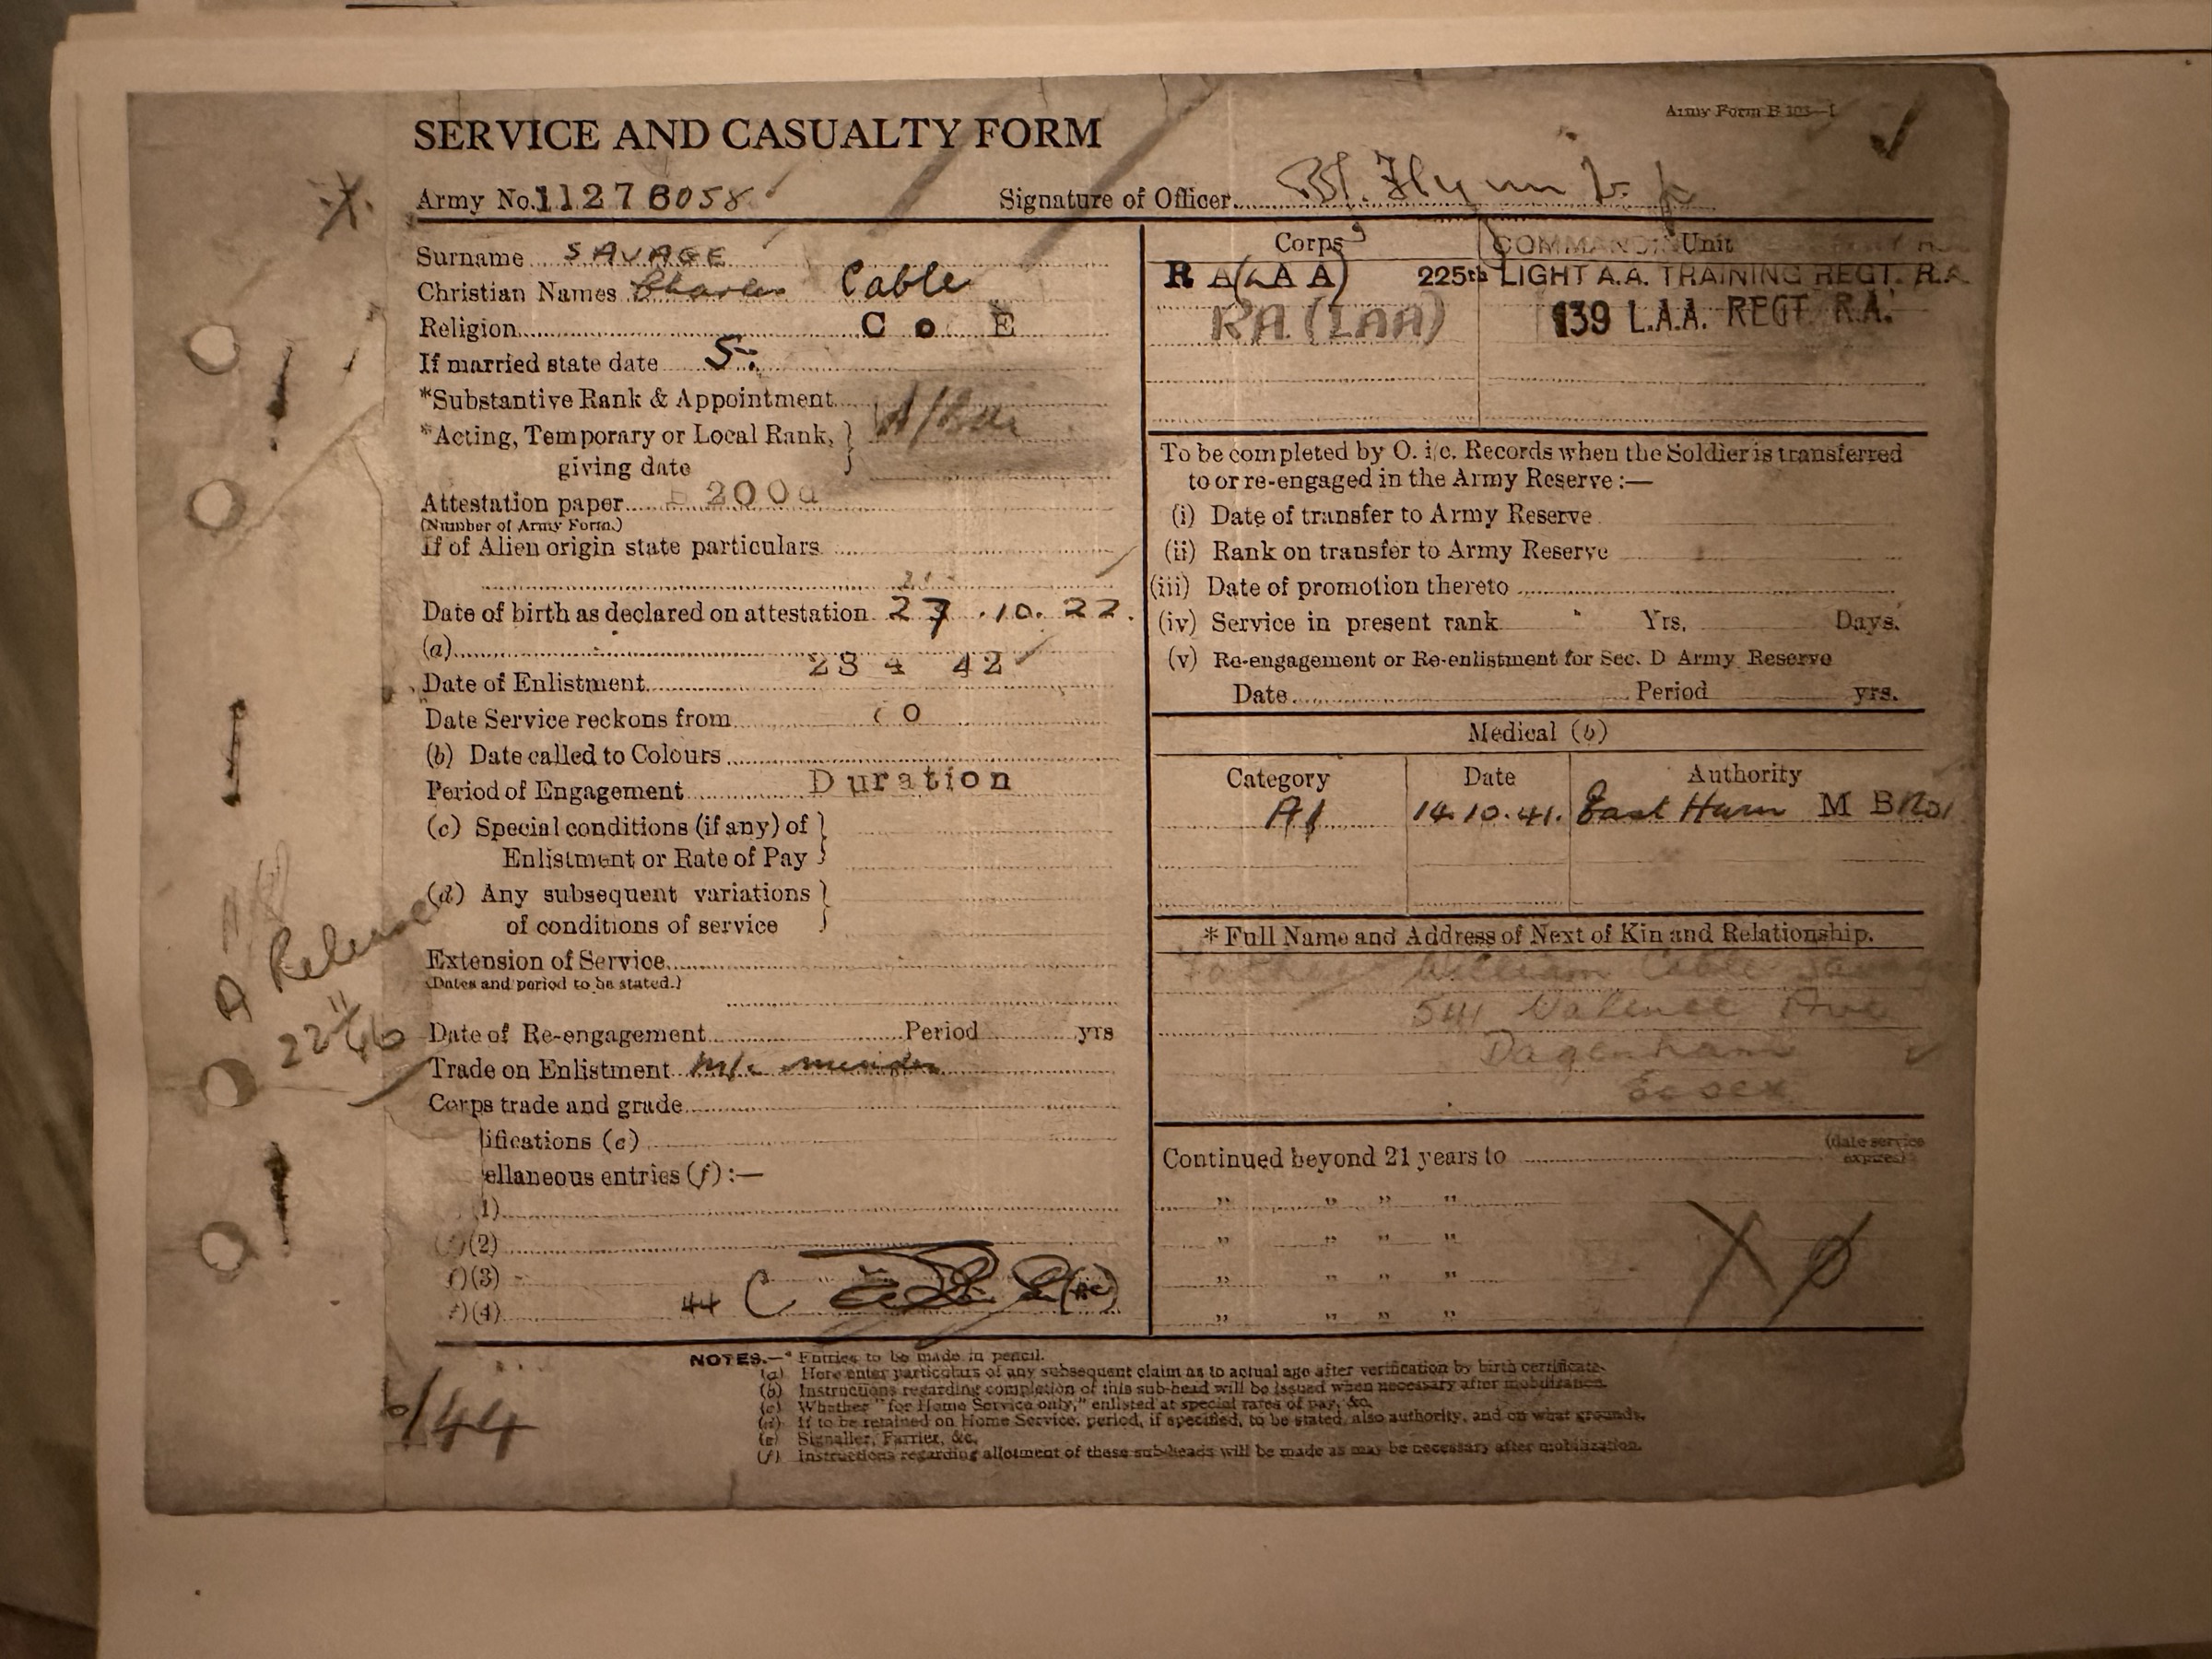 Army Form B 103—I
SERVICE AND CASUALTY FORM
Army No. 11276058
Signature of Officer
Surname SAVAGE
Christian Names Charles Cable
Religion C o E
If married state date S.
*Substantive Rank & Appointment
*Acting, Temporary or Local Rank,
giving date
Attestation paper 200
(Number of Army Form.)
If of Alien origin state particulars
Date of birth as declared on attestation 27.10.22.
(a)
Date of Enlistment 23 4 42
Date Service reckons from
(b) Date called to Colours
Period of Engagement Duration
(c) Special conditions (if any) of
Enlistment or Rate of Pay
(d) Any subsequent variations
of conditions of service
Extension of Service
(Dates and period to be stated.)
Date of Re-engagement Period yrs
Trade on Enlistment
Corps trade and grade
ifications (e)
ellaneous entries (f) :—
1)
(2)
(3)
(4) 44 C
A Release
22/11/46
6/44
Corps Unit
COMMANDIN
R A (LAA) 225th LIGHT A.A. TRAINING REGT. R.A.
RA (LAA) 139 L.A.A. REGT. R.A.
To be completed by O. i/c. Records when the Soldier is transferred
to or re-engaged in the Army Reserve :—
(i) Date of transfer to Army Reserve
(ii) Rank on transfer to Army Reserve
(iii) Date of promotion thereto
(iv) Service in present rank Yrs. Days.
(v) Re-engagement or Re-enlistment for Sec. D Army Reserve
Date Period yrs.
Medical (b)
Category Date Authority
A1 14.10.41. East Ham M B No1
* Full Name and Address of Next of Kin and Relationship.
Father William Cable Savage
541 Valence Ave
Dagenham
Essex
Continued beyond 21 years to (date service expires)
" " " "
" " " "
" " " "
" " " "
NOTES.—* Entries to be made in pencil.
(a) Here enter particulars of any subsequent claim as to actual age after verification by birth certificate.
(b) Instructions regarding completion of this sub-head will be issued when necessary after mobilization.
(c) Whether "for Home Service only," enlisted at special rates of pay, &c.
(d) If to be retained on Home Service, period, if specified, to be stated, also authority, and on what grounds.
(e) Signaller, Farrier, &c.
(f) Instructions regarding allotment of these sub-heads will be made as may be necessary after mobilization.